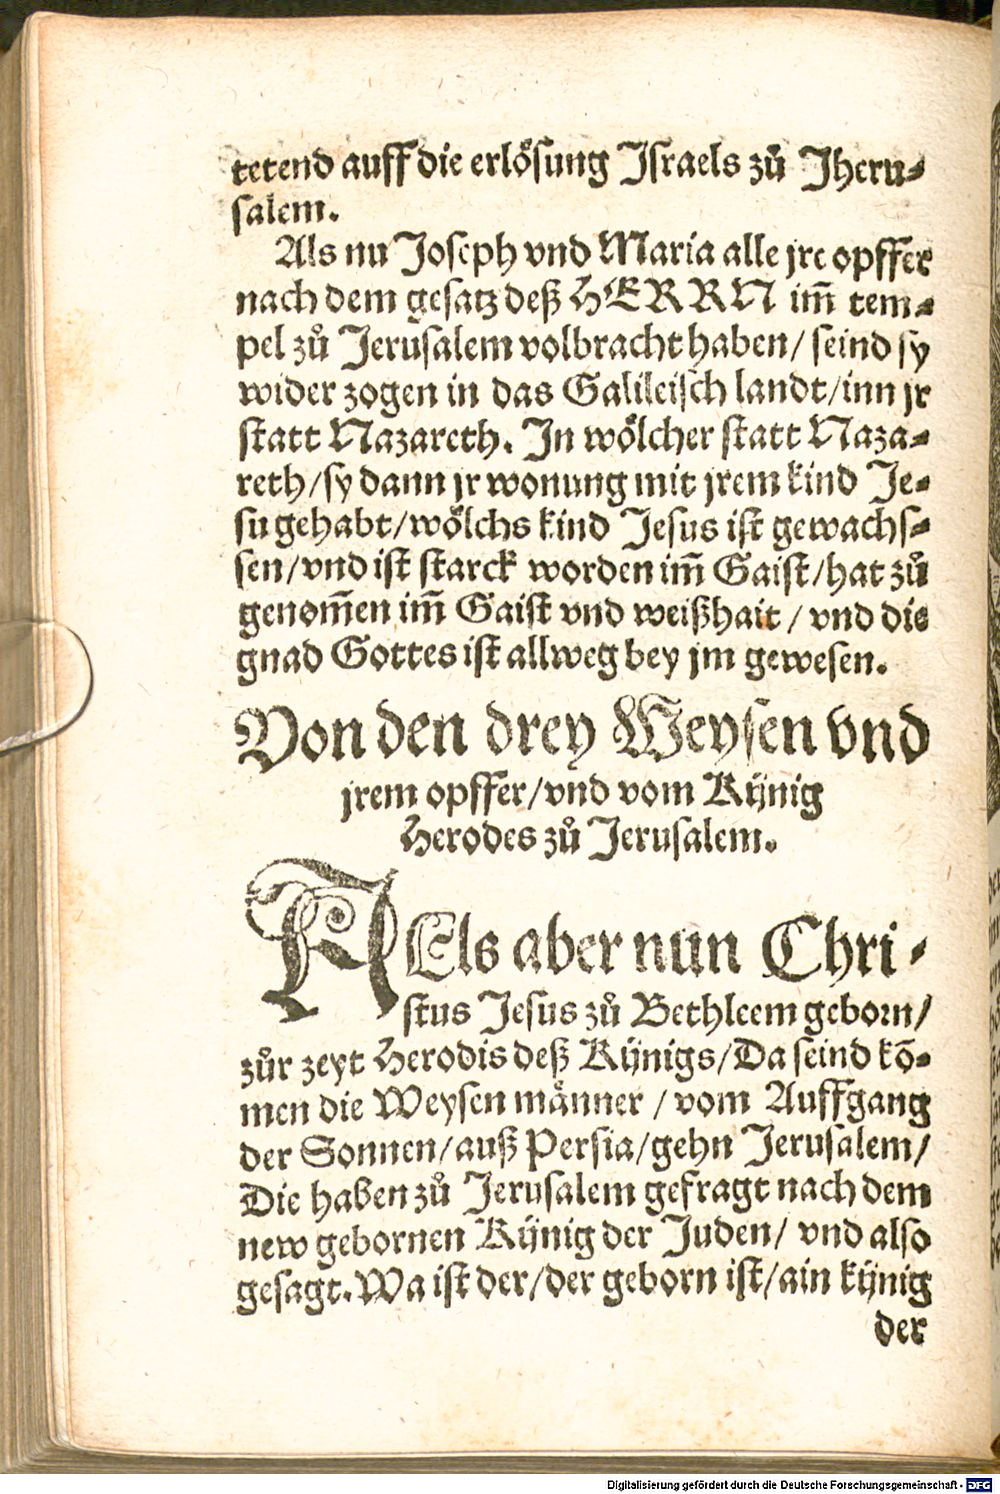 tetend auff die erlösung Israels zů Iheru⸗
salem.
Als nu Joseph vnd Maria alle jre opffer
nach dem gesatz deß HERRN im̃ tem⸗
pel zů Jerusalem volbracht haben/ seind sy
wider zogen in das Galileisch landt/inn jr
statt Nazareth. In wölcher statt Naza⸗
reth/sy dann jr wonung mit jrem kind Je⸗
su gehabt/wölchs kind Jesus ist gewachs⸗
sen/vnd ist starck worden im̃ Gaist/hat zů
genom̃en im̃ Gaist vnd weißhait / vnd die
gnad Gottes ist allweg bey jm gewesen.
Von den drey Weysen vnd
jrem opffer/vnd vom Kynig
Herodes zů Jerusalem.
AEls aber nun Chri⸗
stus Jesus zů Bethleem geborn/
zůr zeyt Herodis deß Kÿnigs/Da seind kõ⸗
men die Weysen männer / vom Auffgang
der Sonnen/auß Persia/gehn Jerusalem/
Die haben zů Jerusalem gefragt nach dem
new gebornen Kÿnig der Juden/ vnd also
gesagt. Wa ist der/der geborn ist/ain kÿnig
der
Digitalisierung gefördert durch die Deutsche Forschungsgemeinschaft - DFG